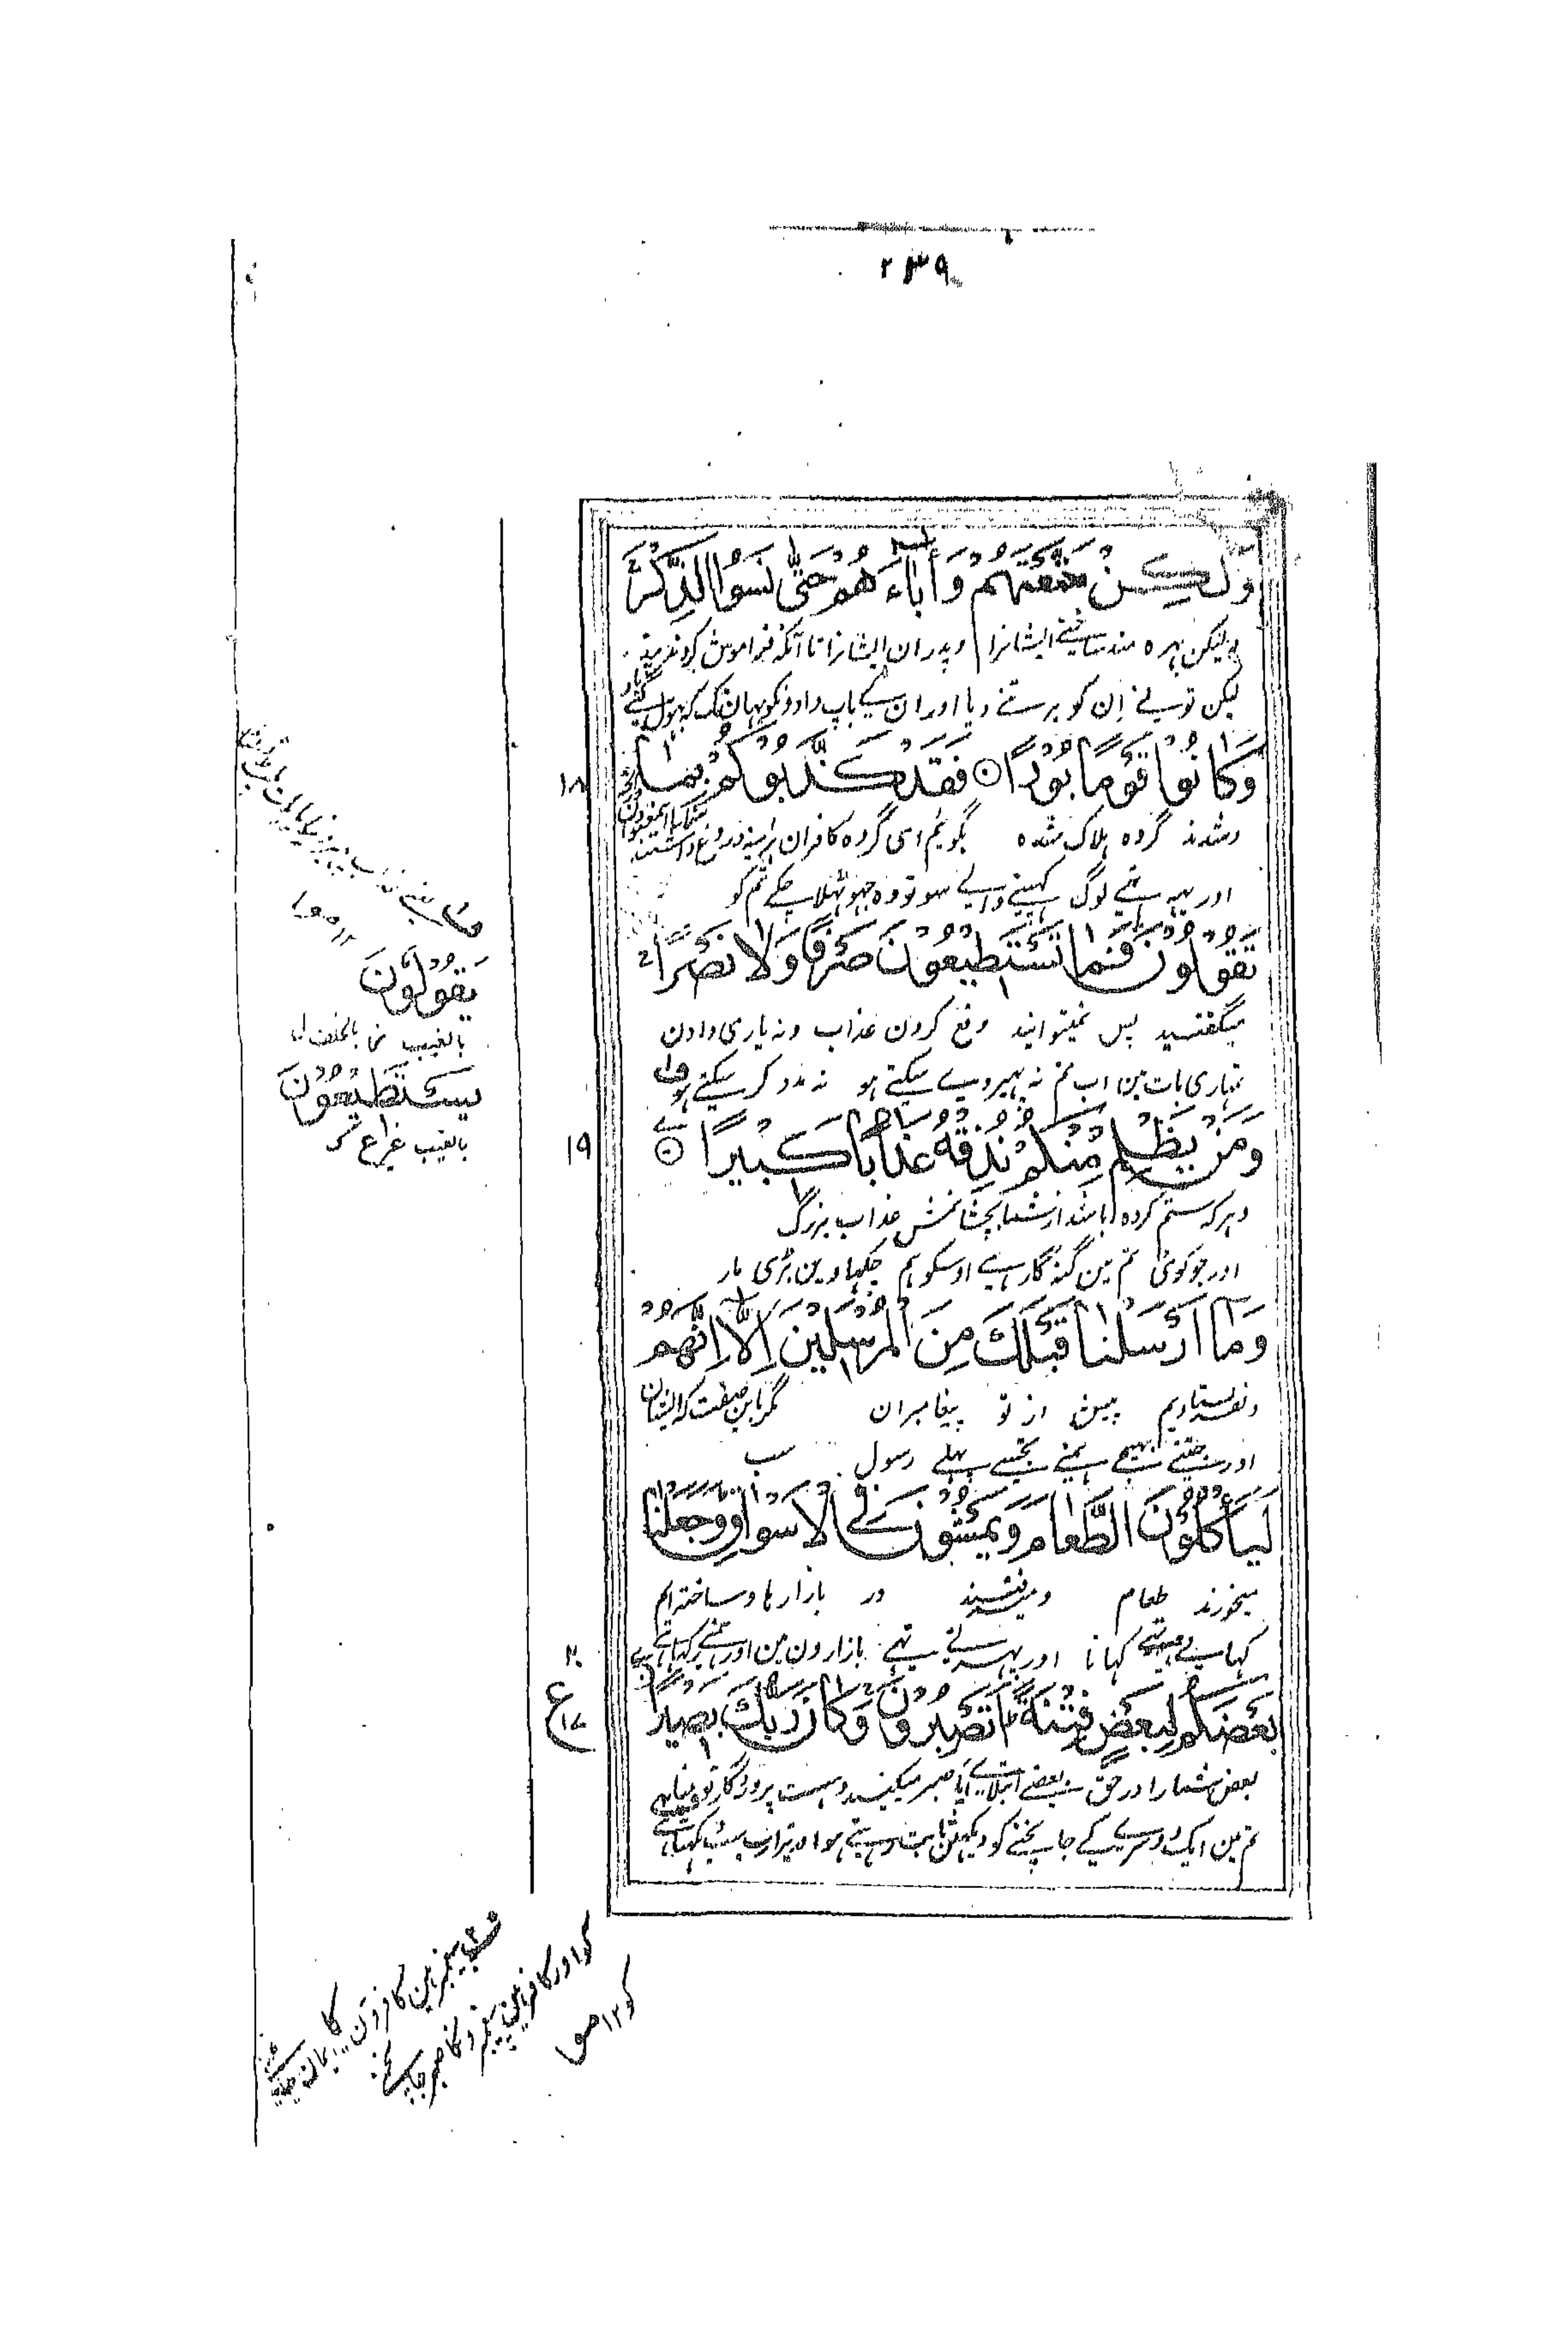 ۲۳۹
وَلٰكِنْ مَتَّعْتَهُمْ وَاٰبَآءَهُمْ حَتّٰى نَسُوا الذِّكْرَ
ولیکن بهره مند ساختی ایشانرا و پدران ایشانرا تا آنکه فراموش کردند پند
لیکن تو نے ان کو برتنے دیا اور ان کے باپ دادونکو یہان تک کہ بہول گئے
وَكَانُوْا قَوْمًا بُوْرًا ۝ فَقَدْ كَذَّبُوْكُمْ بِمَا
۱۸
وشدند گروه هلاک شده بگوئیم ای گروه کافران دروغ داشتند
اور یہہ تہے لوگ کہپنے والے سو تو وہ جہوٹہلا چکے تم کو
تَقُوْلُوْنَ فَمَا تَسْتَطِيْعُوْنَ صَرْفًا وَلَا نَصْرًا
میگفتید پس نمیتوانید دفع کردن عذاب ونہ یاری دادن
تمہاری بات مین اب تم نہ پہیر دے سکتے ہو نہ مدد کر سکتے ہو
وَمَنْ يَظْلِمْ مِنْكُمْ نُذِقْهُ عَذَابًا كَبِيْرًا ۝
۱۹
وہرکہ ستم کردہ باشد از شما بچشانمش عذاب بزرگ
اور جو کوئی تم مین گنہگار ہے اوسکو ہم چکہاوین بڑی مار
وَمَا اَرْسَلْنَا قَبْلَكَ مِنَ الْمُرْسَلِيْنَ اِلَّا اِنَّهُمْ
ونفرستادیم پیش از تو پیغامبران مگر باین صفت کہ ایشان
اور جتنے بہیجے ہمنے تجہسے پہلے رسول سب
لَيَأْكُلُوْنَ الطَّعَامَ وَيَمْشُوْنَ فِي الْاَسْوَاقِ وَجَعَلْنَا
میخورند طعام ومیرفتند در بازارہا وساختہ ایم
کہانا اور پہرتے تہے بازارون مین اور ہمنے رکہا ہے
۲۰
بَعْضَكُمْ لِبَعْضٍ فِتْنَةً اَتَصْبِرُوْنَ وَكَانَ رَبُّكَ بَصِيْرًا
ع
۱۷
بعض شمارا در حق بعضے ابتلاے آیا صبر میکنید وہست پروردگار تو بینا
تم مین ایک دوسرے کے جانچنے کو دیکہین ثابت رہتے ہو اور تیرا رب سب دیکہتا ہے
يَقُوْلُوْنَ
بالغیب
يَسْتَطِيْعُوْنَ
بالغیب
پیغمبر ہین کافرون کا ایمان
کو اور کافر ہین پیغمبرونکا صبر جانچنے
کو ۱۲